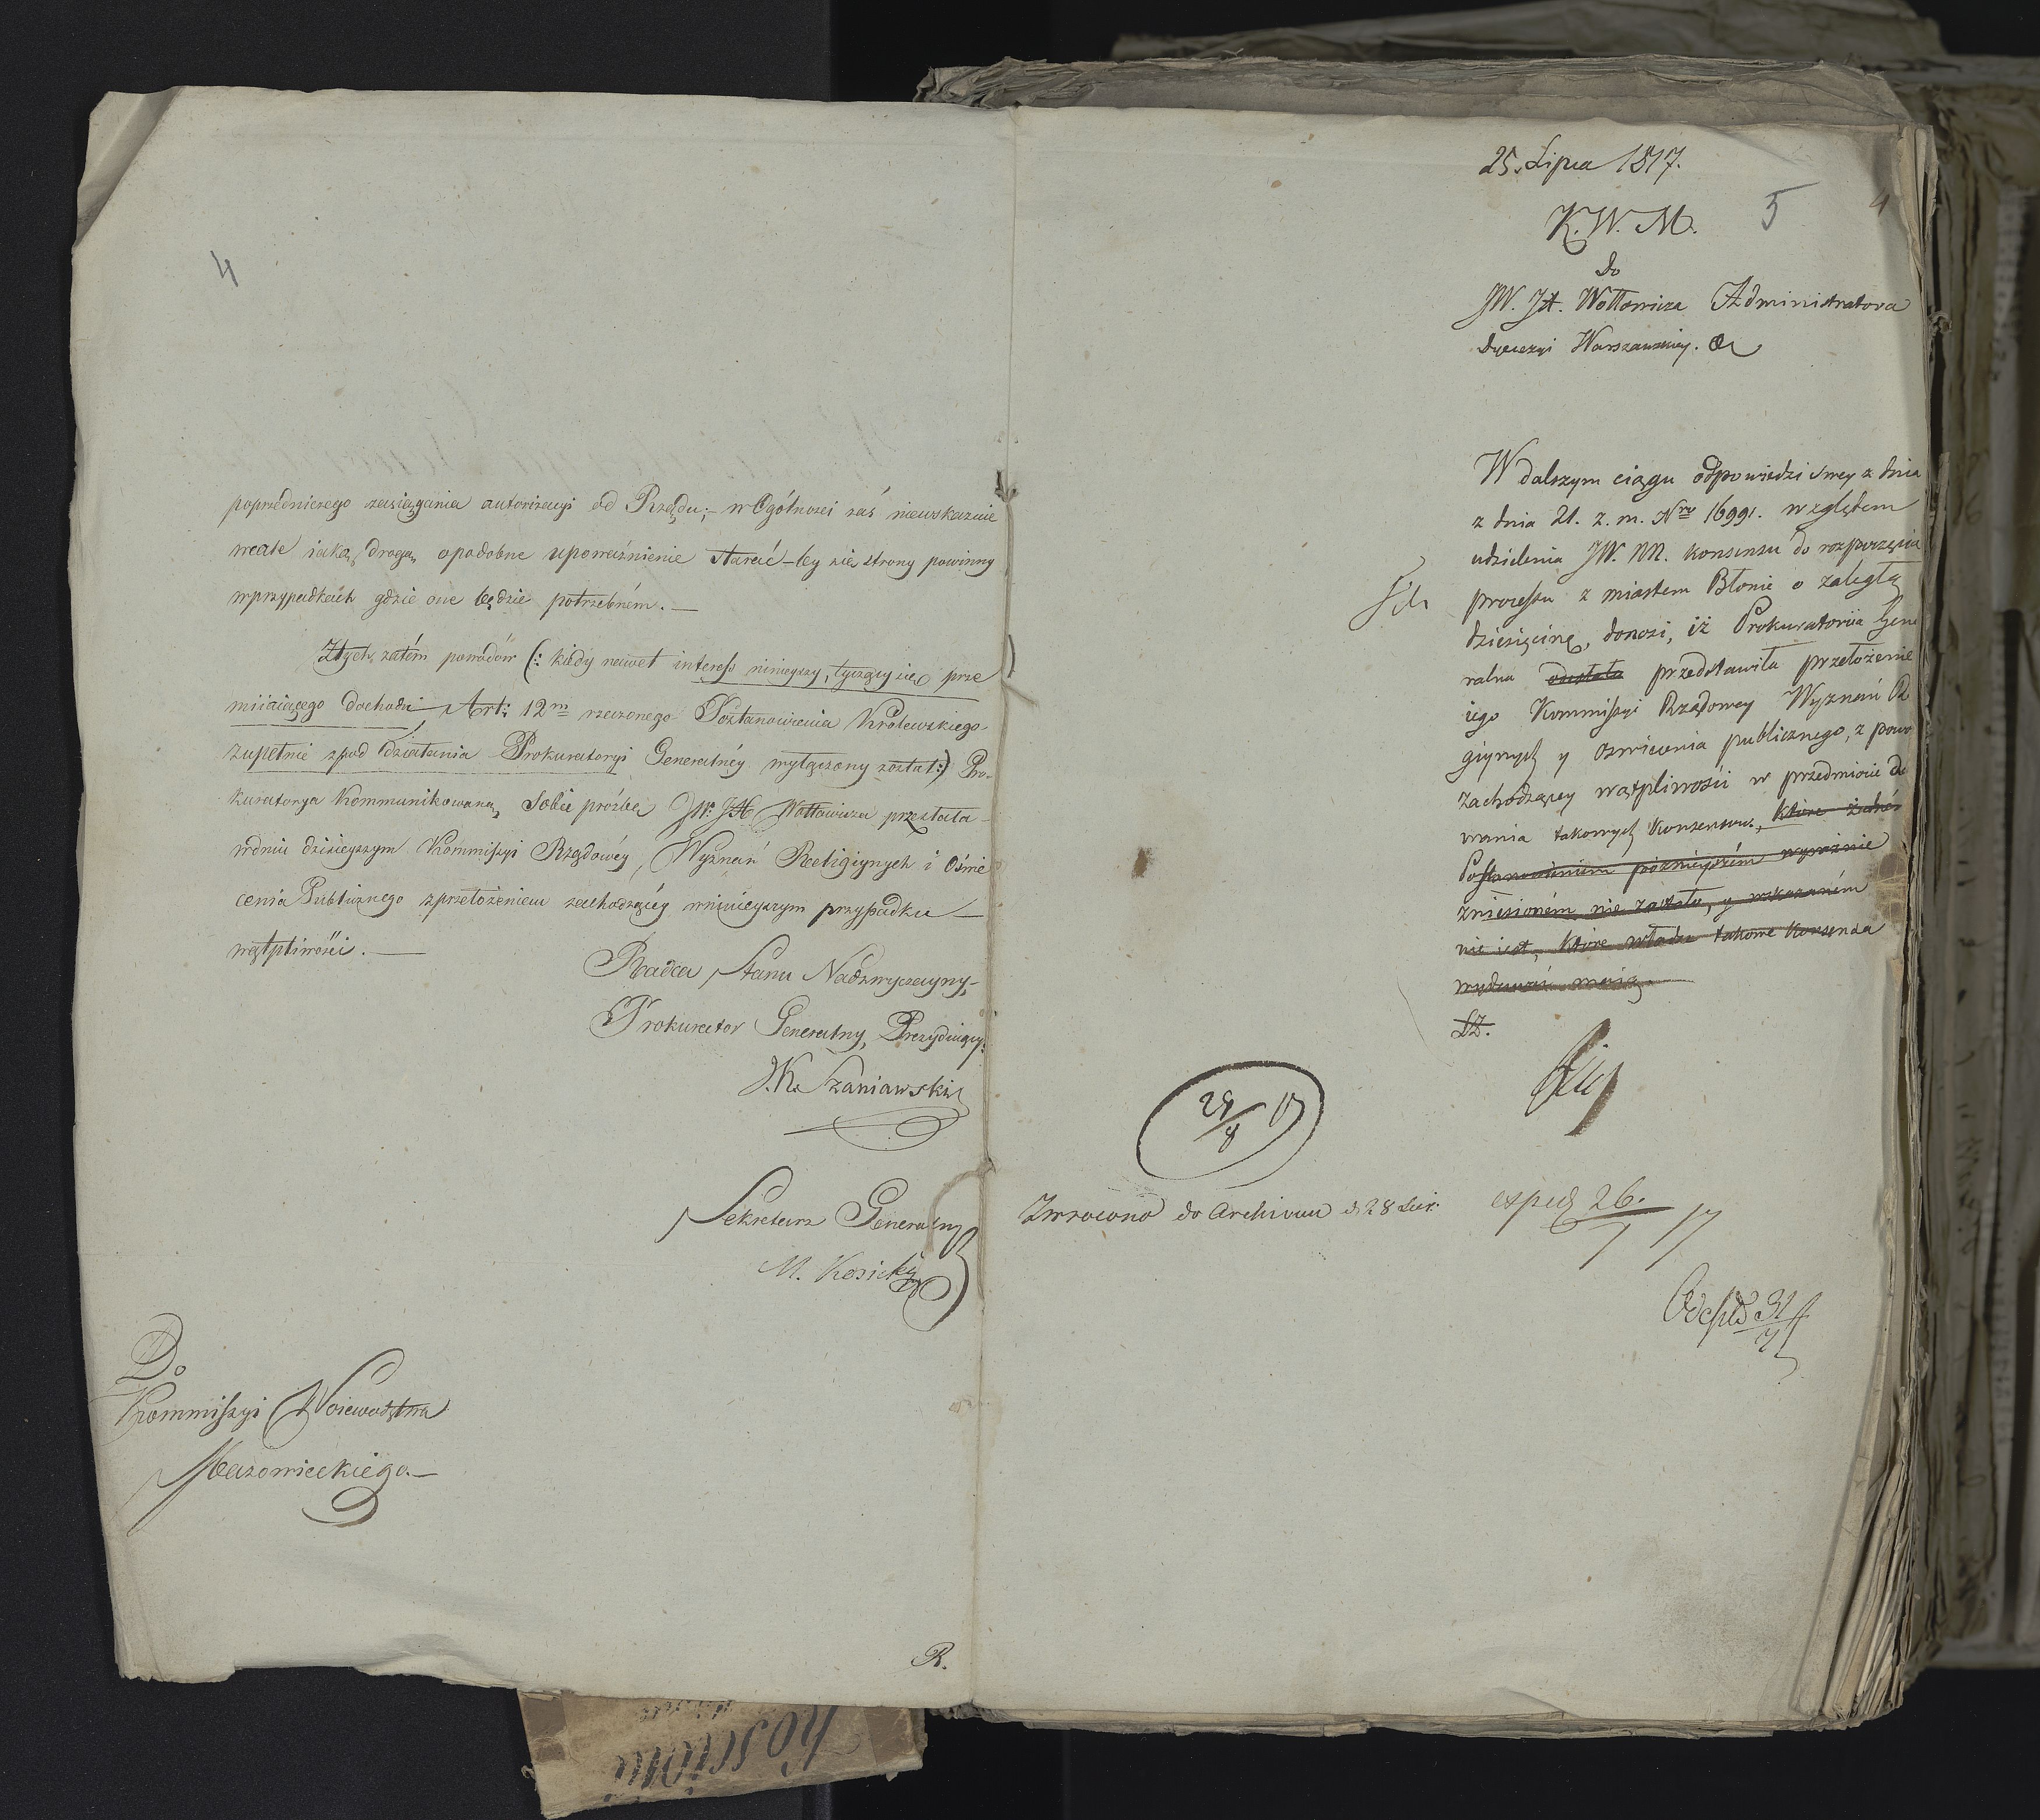 4
poprzedniczego zasięgania autorizacyi od Rządu;- w Ogólności zaś niewskazuie
wcale iaką drogą opodobne upoważnienie starać-by się strony powinny
wprzypadkach gdzie one będzie potrzebném.—
Ztych zatém powodów (: kiedy nawet interess ninieyszy, tyczący się prze
miiaiącego dochodu Art: 12m rzeczonego Postanowienia Królewskiego
zupełnie zpod działania Prokuratoryi Generalnéy wyłączony został:) Pro-
kuratorya Kommunikowaną Sobie prózbę JW. JX Wołłowicza przesłała
wdniu dzisieyszym Kommissyi Rządowéy, Wyznań Religiynych i Oświe
cenia Publicznego zprzełożeniem zachodzącéy wninieyszym przypadku —
wątpliwości.—
Radca Stanu Nadzwyczayny,
Prokurator Generalny, Prezyduiący.
J.K. Szaniawski
Sekretarz Generalny
M. Kosicky
Do
Kommissyi Woiewództwa
Mazowieckiego.—
R.
25. Lipca 1817.
K. W. M. 5 4
do
JW. JX. Wołłowicza Administratora
Dyecezyi Warszawskiey.
W dalszym ciągu odpowiedzi swey z dnia
z dnia 21. z. m. Nro 16991. względem
udzielenia JW. MM. konsensu do rozpoczęcia
processu z miastem Błonie o zaległą
dziesięcinę, donosi, iż Prokuratoria Gene
ralna odesłała przedstawiła przełożenie
iego Kommissyi Rządowey Wyznań Re
giynych y Oswiecenia publicznego, z powo
zachodzącey wątpliwości w przedmiocie da
wania takowych Konsensow, które
Postanowieniem poźnieyszém wyraźnie
zniesioném nie zostało, y wskazaném
nie iest, które władze takowe Konsensa
wydawać maią.
29/8 17
Zwrocono do Archivum d. 28
exped 26. / 7 17
31/7